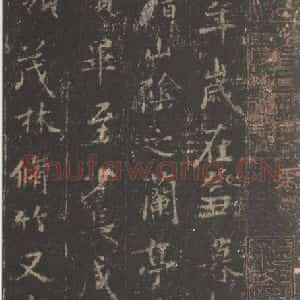 年歲在癸丑暮
稽山陰之蘭亭
賢畢至少長咸
領茂林脩竹又
Shufawang.CN